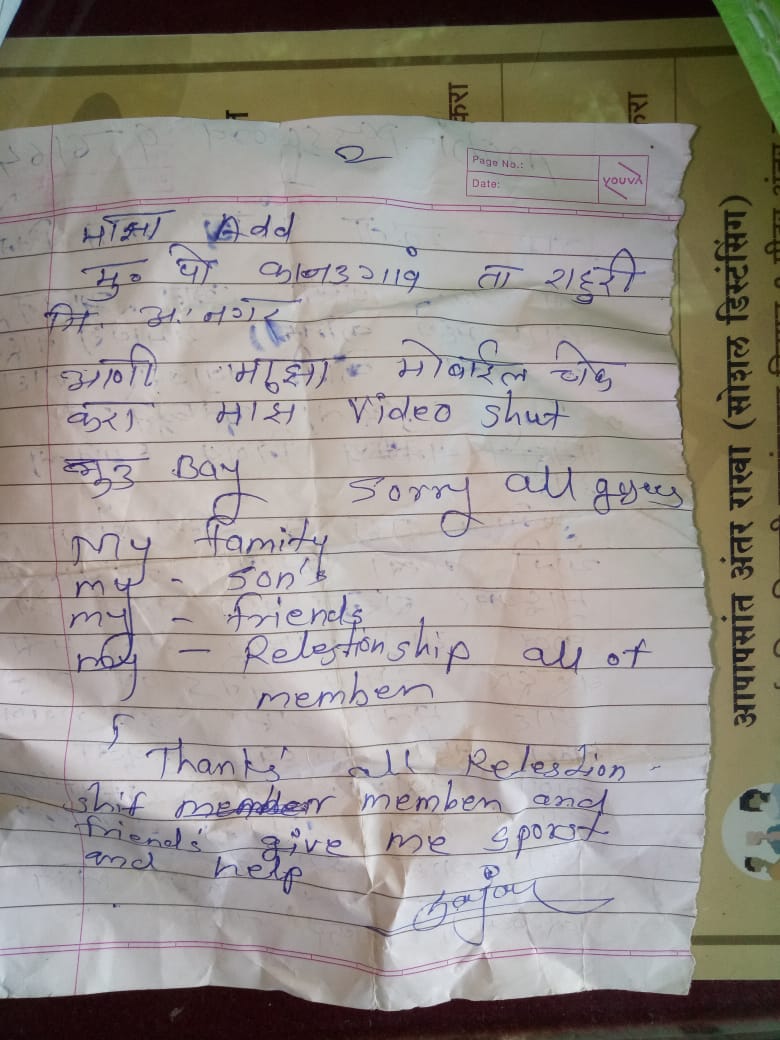 २
Page No.:
Date:
YOUVA
माझा Add
मु० पो कानडगांव ता राहुरी
जि. अ. नगर
आणी माझा मोबाईल चेक
करा माझ Video shut
गुड Bay Sorry all guys
My family
my - son's
my - friends
my - Relestionship all of
memben
Thanks all Relestion -
shif member memben and
friends give me sporst
and help
आपापसांत अंतर राखा (सोशल डिस्टंसिंग)
करा